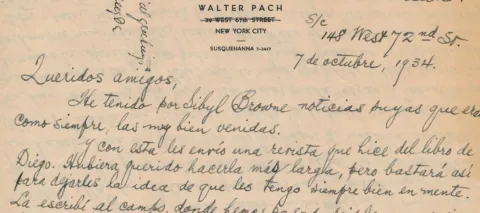 WALTER PACH
39 WEST 67th STREET
NEW YORK CITY
SUSQUEHANNA 7-2417
S/c
148 West 72nd St.
7 de octubre, 1934.
Queridos amigos,
He tenido por Sibyl Browne noticias suyas que eran
como siempre, las muy bien venidas.
Y con esta les envío una revista que hice del libro de
Diego. Hubiera querido hacerla más larga, pero bastará así
para dejarles la idea de que les tengo siempre bien en mente.
La escribí al campo, donde hemos